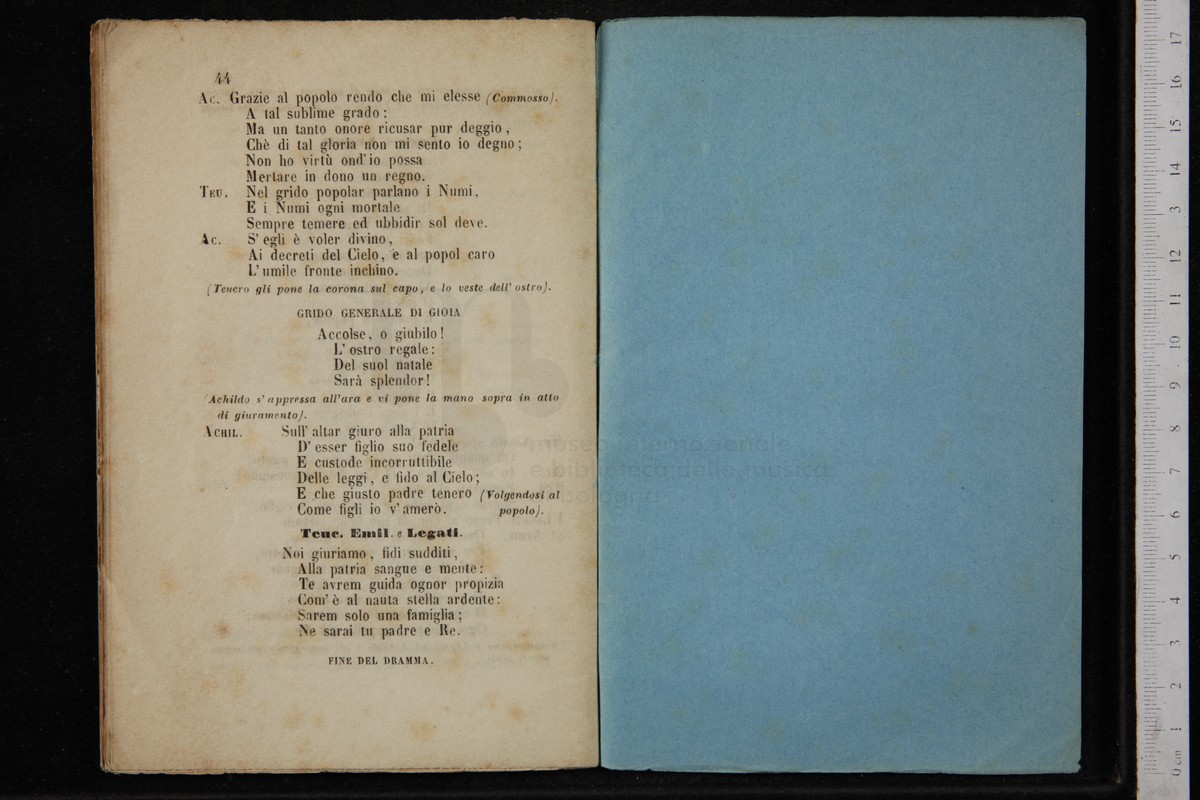 44
Ac. Grazie al popolo rendo che mi elesse (Commosso).
A tal sublime grado:
Ma un tanto onore ricusar pur deggio,
Chè di tal gloria non mi sento io degno;
Non ho virtù ond'io possa
Mertare in dono un regno.
Teu. Nel grido popolar parlano i Numi,
E i Numi ogni mortale
Sempre temere ed ubbidir sol deve.
Ac. S'egli è voler divino,
Ai decreti del Cielo, e al popol caro
L'umile fronte inchino.
(Teucro gli pone la corona sul capo, e lo veste dell'ostro).
GRIDO GENERALE DI GIOIA
Accolse, o giubilo!
L'ostro regale:
Del suol natale
Sarà splendor!
(Achildo s'appressa all'ara e vi pone la mano sopra in atto
di giuramento).
Achil. Sull'altar giuro alla patria
D'esser figlio suo fedele
E custode incorruttibile
Delle leggi, e fido al Cielo;
E che giusto padre tenero (Volgendosi al
Come figli io v'amerò. popolo).
Teuc. Emil. e Legati.
Noi giuriamo, fidi sudditi,
Alla patria sangue e mente:
Te avrem guida ognor propizia
Com'è al nauta stella ardente:
Sarem solo una famiglia;
Ne sarai tu padre e Re.
FINE DEL DRAMMA.
museo internazionale
e biblioteca della musica
di bologna
0 cm 1 2 3 4 5 6 7 8 9 10 11 12 13 14 15 16 17